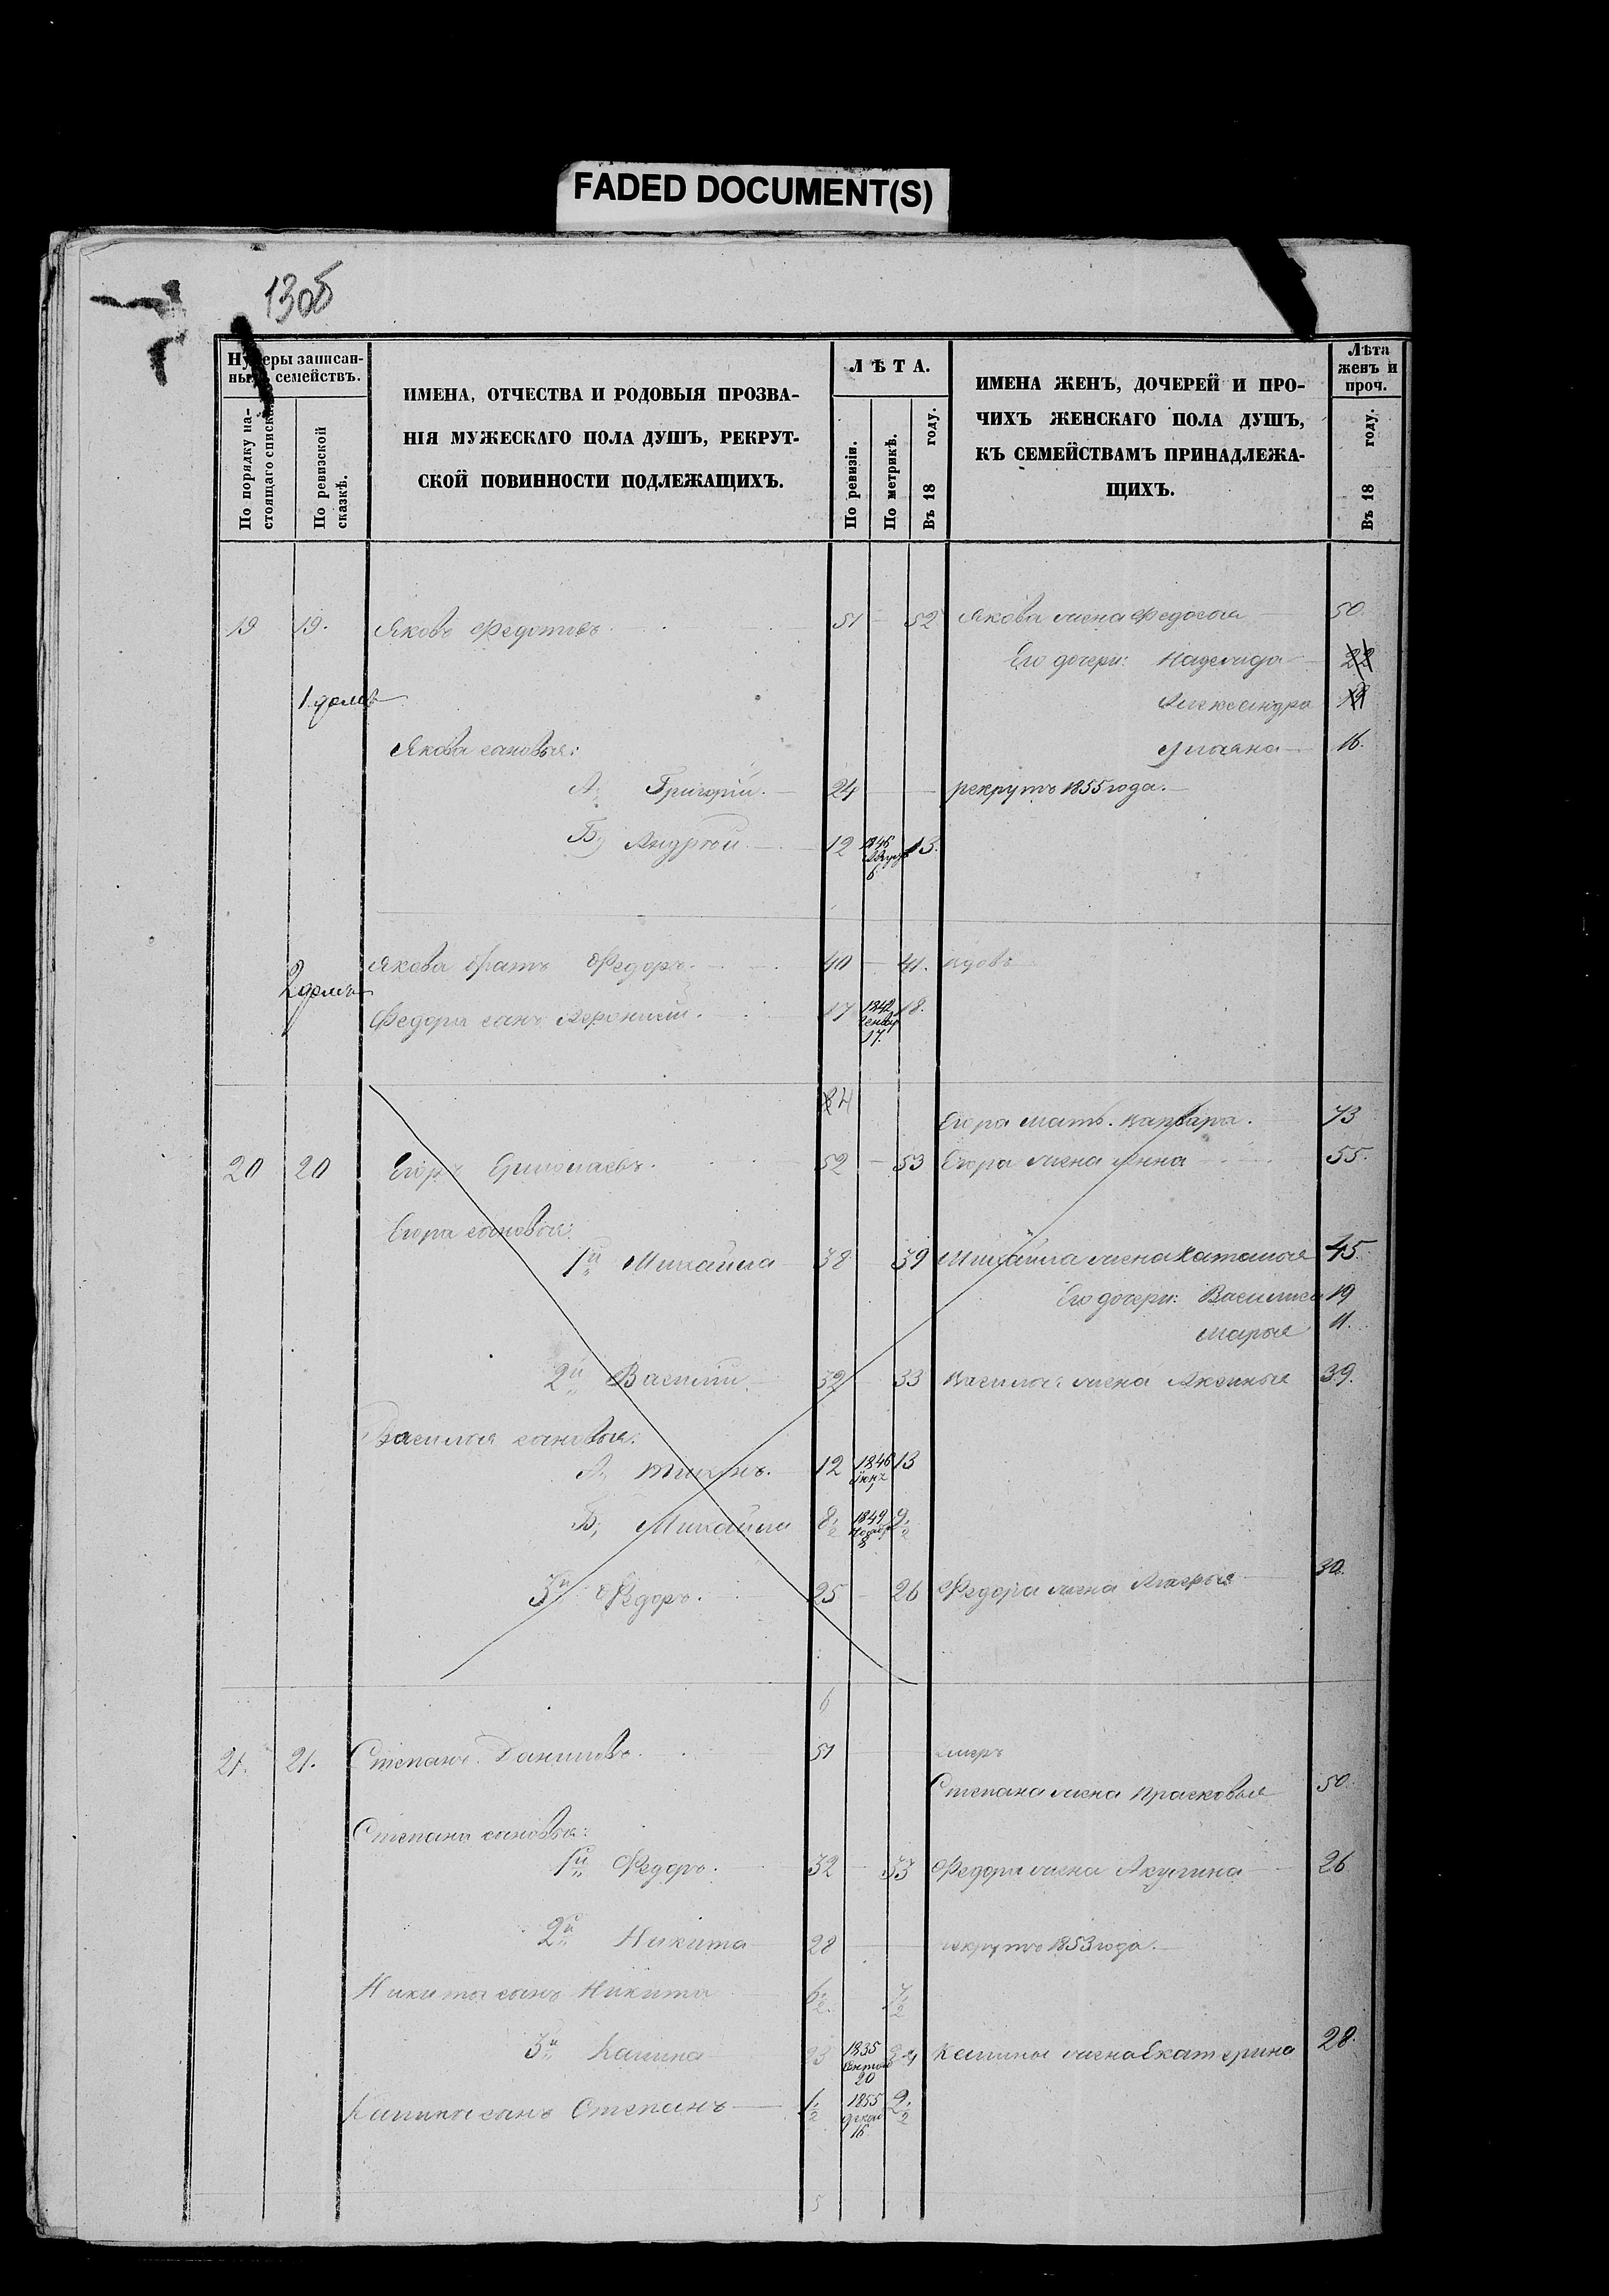 FADED DOCUMENT(S)
130б
Нумеры записанныхъ семействъ.
По порядку настоящаго списка.
По ревизской сказкѣ.
ИМЕНА, ОТЧЕСТВА И РОДОВЫЯ ПРОЗВА-
НІЯ МУЖЕСКАГО ПОЛА ДУШЪ, РЕКРУТ-
СКОЙ ПОВИННОСТИ ПОДЛЕЖАЩИХЪ.
ЛѢТА.
По ревизіи.
По метрикѣ.
Въ 18 году.
ИМЕНА ЖЕНЪ, ДОЧЕРЕЙ И ПРО-
ЧИХЪ ЖЕНСКАГО ПОЛА ДУШЪ,
КЪ СЕМЕЙСТВАМЪ ПРИНАДЛЕЖА-
ЩИХЪ.
Лѣта женъ и проч.
Въ 18 году.
19 19. Яковъ Федотовъ 51 — 52 Якова жена Федосья 50.
Его дочери: Надежда 22
1 домъ Александра
Якова сыновья: Ульяна 16.
А, Григорій. 24 — рекрутъ 1855 года.
Б, Андрей. 12 1846 Август 6 13.
2 домъ Якова братъ Федоръ. 40 — 41. вдовъ
Федора сынъ 17 1842 18.
17.
Егора мать Варвара. 73
20 20 Егоръ 52 — 53 Егора жена Анна 55.
Егора сыновья:
1й Михайла 38 39 Михайла жена Наталья 45.
Его дочери: Василиса 19
Марья 11.
2й Василій. 32 33 Василья жена Аксинья 39.
Василья сыновья:
А, 12 1846 13
Б, Михайла 8½ 1849 Ноябр 8 9½
3й Федоръ. 25 — 26 Федора жена 30.
6
21. 21. Степанъ Даниловъ. 51 умеръ
Степана жена Прасковья 50.
Степана сыновья:
1й Федоръ. 32 33 Федора жена Акулина 26
2й Никита 28 — рекрутъ 1853 года.
Никиты сынъ Никита 6½ 7½
3й Калина 23 1835 Сентяб 20 24 Калины жена Екатерина 28.
Калины сынъ Степанъ 1½ 1855 декаб 16 2½
5